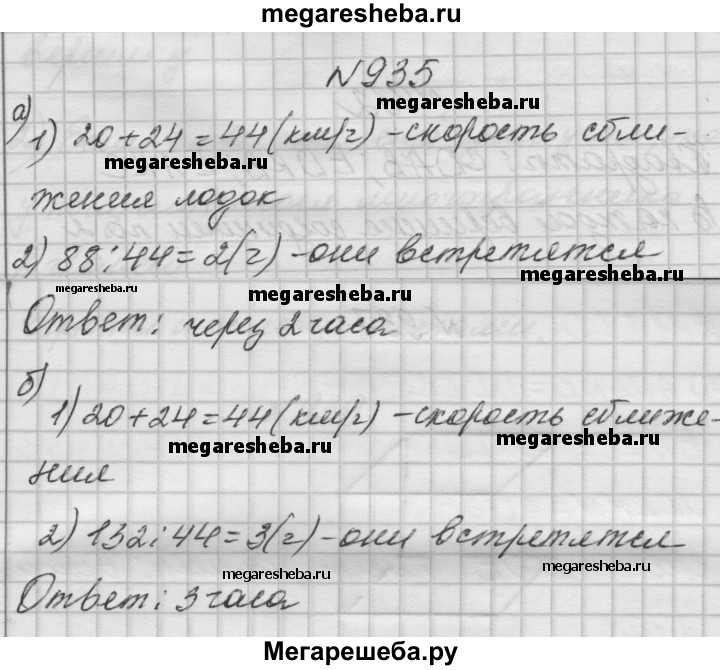 megaresheba.ru
№935
megaresheba.ru
а)
1) 20+24=44(км/г) -скорость сбли-
megaresheba.ru
жения лодок
2) 88:44=2(г) -они встретятся
megaresheba.ru
megaresheba.ru
megaresheba.ru
Ответ: через 2 часа
б)
1) 20+24=44(км/г) -скорость сближе-
megaresheba.ru
megaresheba.ru
ния
2) 132:44=3(г) -они встретятся
megaresheba.ru
megaresheba.ru
Ответ: 3 часа
Мегарешеба.ру